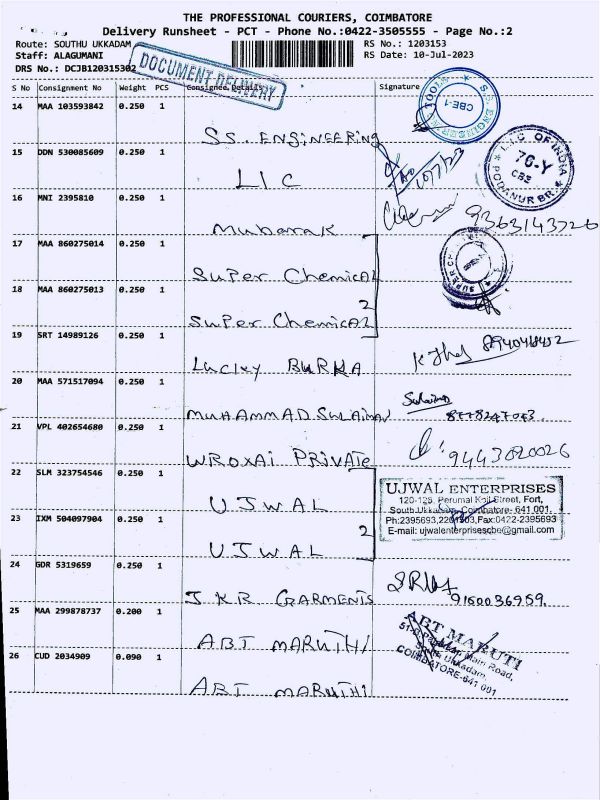 THE PROFESSIONAL COURIERS, COIMBATORE
Delivery Runsheet - PCT - Phone No.:0422-3505555 - Page No.:2
Route: SOUTHU UKKADAM
RS No.: 1203153
Staff: ALAGUMANI
RS Date: 10-Jul-2023
DRS No.: DCJB120315302
DOCUMENT DELIVERY
S No Consignment No Weight PCS Consignee Details Signature
14 MAA 103593842 0.250 1
SS. ENGINEERING
CBE-1
15 DDN 530085609 0.250 1
LIC
10/7/23
L.I.C OF INDIA
76-Y
CBE
PODANUR BR.
16 MNI 2395810 0.250 1
Mubarak
9363143726
17 MAA 860275014 0.250 1
SuPer ChemicAL
18 MAA 860275013 0.250 1
2
SuPer ChemicAL
19 SRT 14989126 0.250 1
Lucky BURKA
20 MAA 571517094 0.250 1
MUHAMMAD.SULAIMAN
Sulaiman
21 VPL 402654680 0.250 1
WROXAI PRIVATE
9443020026
22 SLM 323754546 0.250 1
UJWAL
UJWAL ENTERPRISES
120-125, Perumal Koil Street, Fort,
South Ukkadam, Coimbatore- 641 001.
Ph:2395693,2201303,Fax:0422-2395693
E-mail: ujwalenterprisescbe@gmail.com
23 IXM 504097904 0.250 1
2
UJWAL
24 GDR 5319659 0.250 1
JKR GARMENTS
9150036959.
25 MAA 299878737 0.200 1
ABT MARUTHI
ABT MARUTI
Main Road,
South Ukkadam,
COIMBATORE-641 001
26 CUD 2034909 0.090 1
ABT MARUTHI